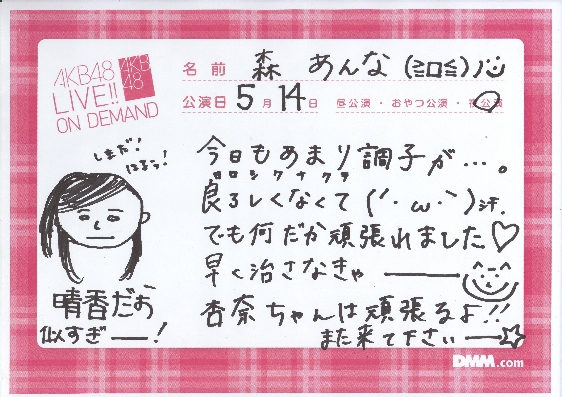 AKB48
LIVE!!
ON DEMAND
AKB
48
名前 森 あんな (≧ロ≦)
公演日 5月14日 昼公演・おやつ公演・夜公演
しまだ!
はるぅ!
今日もあまり調子が…。
ヨロシクナクテ
良ろしくなくて(´・ω・`)汗.
でも何だか頑張れました♡
早く治さなきゃー
晴香だお
似すぎー!
杏奈ちゃんは頑張るよ!!
また来て下さいー☆
DMM.com